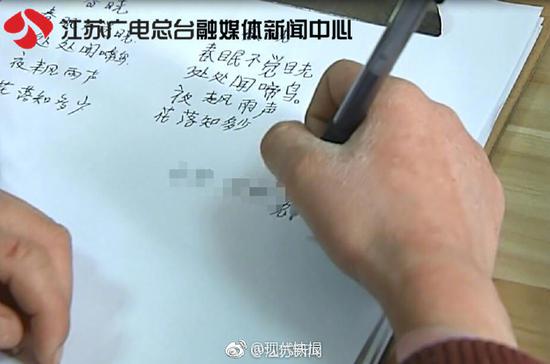 江苏广电总台融媒体新闻中心
春
晓
处处闻啼鸟
夜 雨声
花落知多少
春眠不觉晓
处处闻啼鸟。
夜 雨声
花落知多少
@现代快报
@江苏新闻